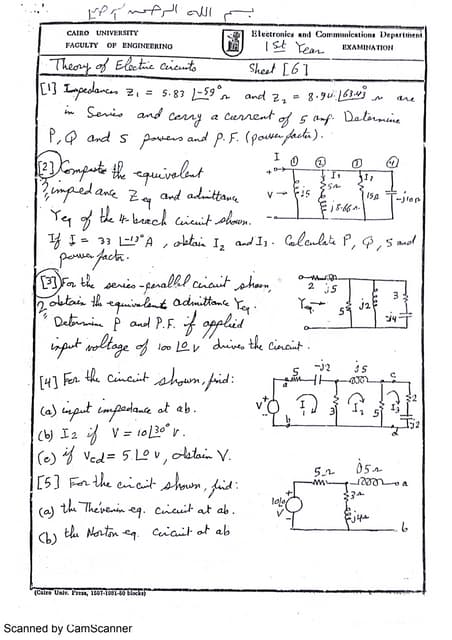 بسم الله الرحمن الرحيم
CAIRO UNIVERSITY
FACULTY OF ENGINEERING
Electronics and Communications Department
1st Year EXAMINATION
Theory of Electric Circuits Sheet [6]
[1] Impedances Z1 = 5.83 ∠-59° Ω and Z2 = 8.94 ∠63.43° Ω are
in Series and carry a current of 5 amp. Determine
P, Q and S powers and P.F. (power factor).
[2] Compute the equivalent
impedance Zeq and admittance
Yeq of the 4-brach circuit shown.
If I = 33 ∠-13° A, obtain I2 and I3. Calculate P, Q, S and
power factor.
I ① ② ③ ④
I2 I3
V j5 5Ω j8.66Ω 15Ω -j10Ω
[3] For the series-parallel circuit shown,
obtain the equivalent admittance Yeq.
Determin P and P.F. if applied
input voltage of 100 ∠0 V drives the circuit.
2 j5
Yeq 5 j2 3 -j4
[4] For the circuit shown, find:
(a) input impedance at ab.
(b) I2 if V = 10∠30° V.
(c) if Vcd = 5 ∠0 V, obtain V.
5 -j2 j5
a c
V I1 3 I2 5 I3
b d
[5] For the circuit shown, find:
(a) the Thévenin eq. circuit at ab.
(b) the Norton eq. circuit at ab
5Ω j5Ω
a
10∠0 V 3Ω j4Ω
b
(Cairo Univ. Press, 1507-1981-60 blocks)
Scanned by CamScanner